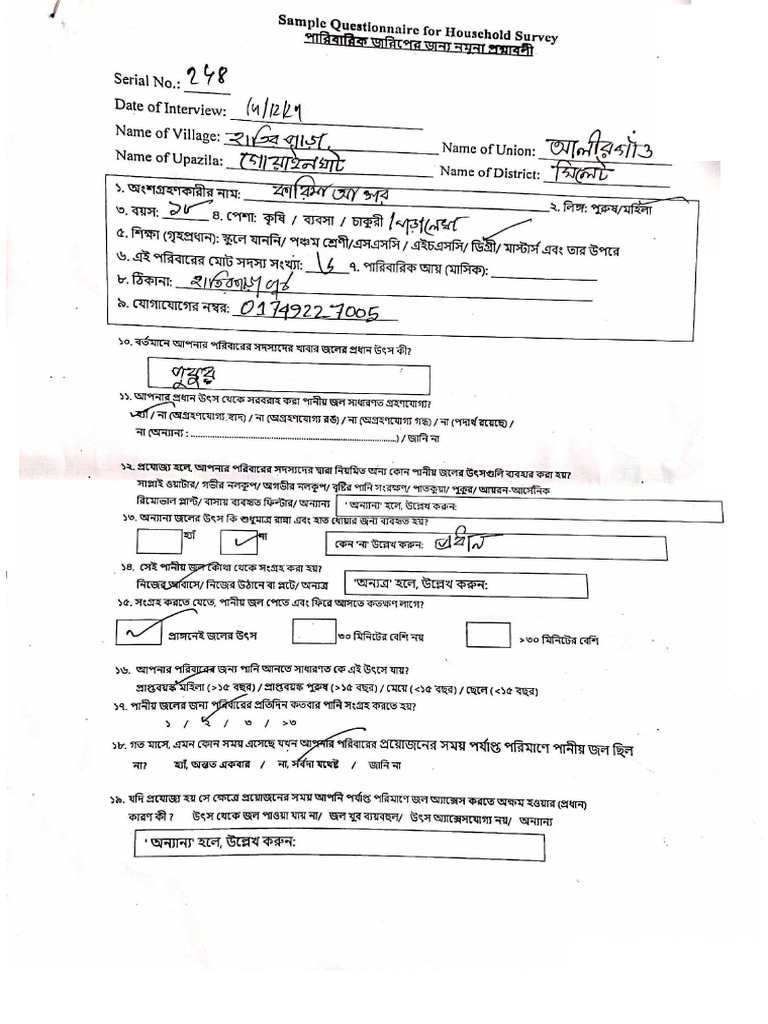 Sample Questionnaire for Household Survey
পারিবারিক জরিপের জন্য নমুনা প্রশ্নাবলী
Serial No.: 248
Date of Interview:
Name of Village: হাতির পাড়া Name of Union: আলীরগাঁও
Name of Upazila: গোয়াইনঘাট Name of District: সিলেট
১. অংশগ্রহণকারীর নাম: ২. লিঙ্গ: পুরুষ/মহিলা
৩. বয়স: ১৮ ৪. পেশা: কৃষি / ব্যবসা / চাকুরী / পড়ালেখা
৫. শিক্ষা (গৃহপ্রধান): স্কুলে যাননি/ পঞ্চম শ্রেণী/এসএসসি / এইচএসসি/ ডিগ্রী/ মাস্টার্স এবং তার উপরে
৬. এই পরিবারের মোট সদস্য সংখ্যা: ৭. পারিবারিক আয় (মাসিক):
৮. ঠিকানা:
৯. যোগাযোগের নম্বর: 01749227005
১০. বর্তমানে আপনার পরিবারের সদস্যদের খাবার জলের প্রধান উৎস কী?
পুকুর
১১. আপনার প্রধান উৎস থেকে সরবরাহ করা পানীয় জল সাধারণত গ্রহণযোগ্য?
হ্যাঁ / না (অগ্রহণযোগ্য স্বাদ) / না (অগ্রহণযোগ্য রঙ) / না (অগ্রহণযোগ্য গন্ধ) / না (পদার্থ রয়েছে) /
না (অন্যান্য : ..........) / জানি না
১২. প্রযোজ্য হলে, আপনার পরিবারের সদস্যদের দ্বারা নিয়মিত অন্য কোন পানীয় জলের উৎসগুলি ব্যবহার করা হয়?
সাপ্লাই ওয়াটার/ গভীর নলকূপ/ অগভীর নলকূপ/ বৃষ্টির পানি সংরক্ষণ/ পাতকুয়া/ পুকুর/ আয়রন-আর্সেনিক
রিমোভাল প্লান্ট/ বাসায় ব্যবহৃত ফিল্টার/ অন্যান্য ' অন্যান্য' হলে, উল্লেখ করুন:
১৩. অন্যান্য জলের উৎস কি শুধুমাত্র রান্না এবং হাত ধোয়ার জন্য ব্যবহৃত হয়?
হ্যাঁ না কেন 'না' উল্লেখ করুন:
১৪. সেই পানীয় জল কোথা থেকে সংগ্রহ করা হয়?
নিজের আবাসে/ নিজের উঠানে বা প্লটে/ অন্যত্র 'অন্যত্র' হলে, উল্লেখ করুন:
১৫. সংগ্রহ করতে যেতে, পানীয় জল পেতে এবং ফিরে আসতে কতক্ষণ লাগে?
প্রাঙ্গনেই জলের উৎস ৩০ মিনিটের বেশি নয় >৩০ মিনিটের বেশি
১৬. আপনার পরিবারের জন্য পানি আনতে সাধারণত কে এই উৎসে যায়?
প্রাপ্তবয়স্ক মহিলা (>১৫ বছর) / প্রাপ্তবয়স্ক পুরুষ (>১৫ বছর) / মেয়ে (<১৫ বছর) / ছেলে (<১৫ বছর)
১৭. পানীয় জলের জন্য পরিবারের প্রতিদিন কতবার পানি সংগ্রহ করতে হয়?
১ / ২ / ৩ / >৩
১৮. গত মাসে, এমন কোন সময় এসেছে যখন আপনার পরিবারের প্রয়োজনের সময় পর্যাপ্ত পরিমাণে পানীয় জল ছিল
না? হ্যাঁ, অন্তত একবার / না, সর্বদা যথেষ্ট / জানি না
১৯. যদি প্রযোজ্য হয় সে ক্ষেত্রে প্রয়োজনের সময় আপনি পর্যাপ্ত পরিমাণে জল অ্যাক্সেস করতে অক্ষম হওয়ার (প্রধান)
কারণ কী ? উৎস থেকে জল পাওয়া যায় না/ জল খুব ব্যয়বহুল/ উৎস অ্যাক্সেসযোগ্য নয়/ অন্যান্য
' অন্যান্য' হলে, উল্লেখ করুন: